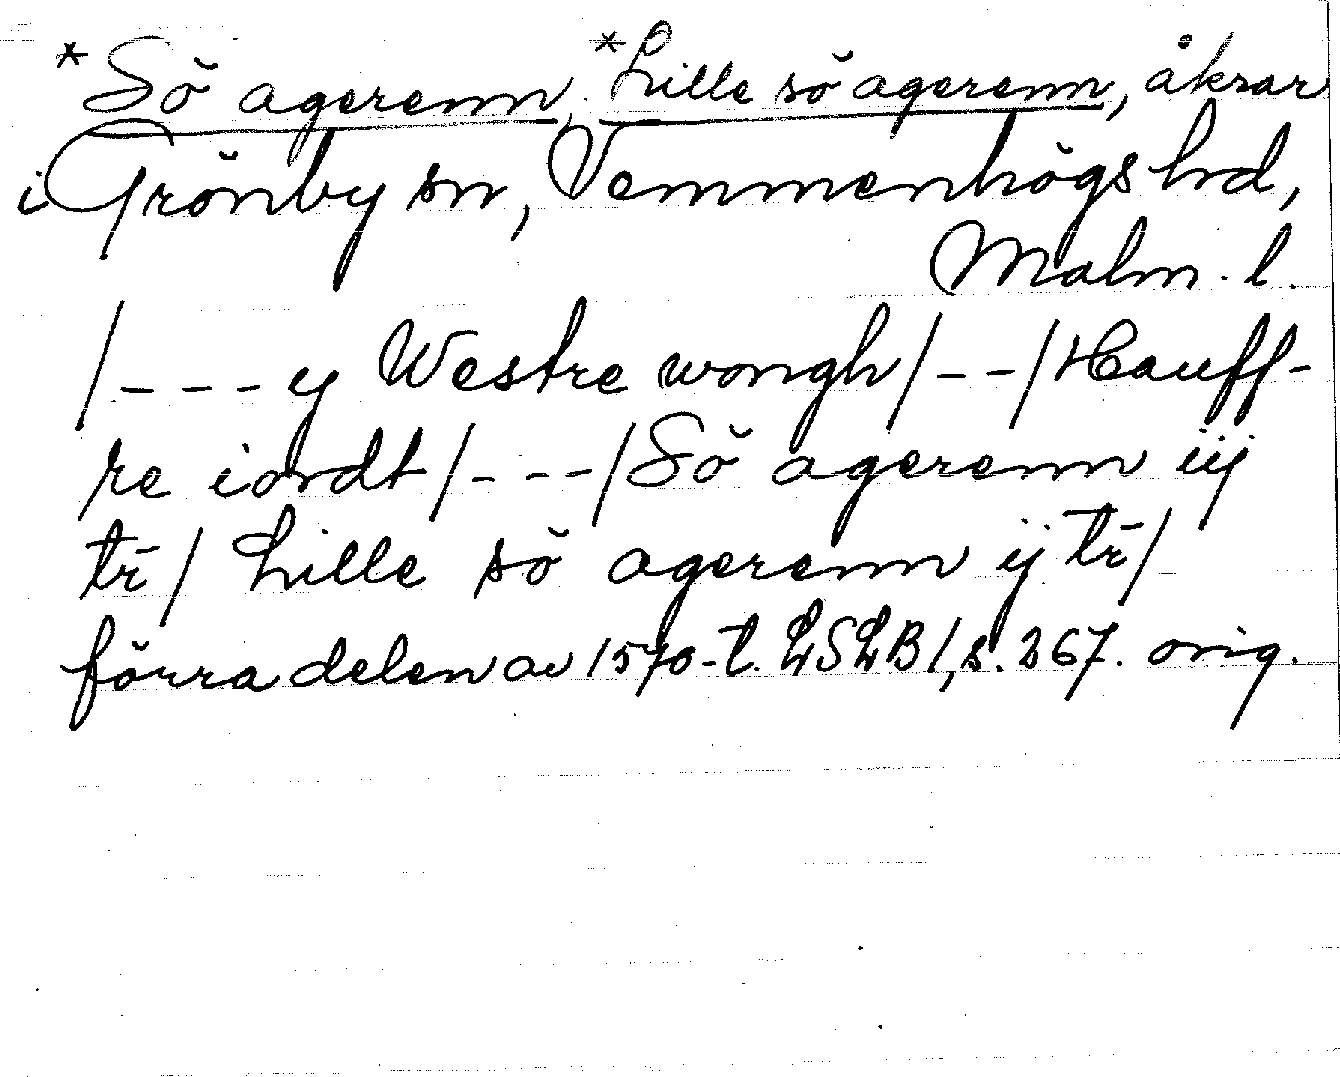 *Sö agerenn, *Lille sö agerenn, åkrar
i Grönby sn, Vemmenhögs hd,
Malm. l.
/---y Westre wongh/--/Hauff-
re iordt/---/Sö agerenn iij
tr̄/ Lille sö agerenn ij tr̄/
förra delen av 1570-t. LSLB 1, s. 367. orig.